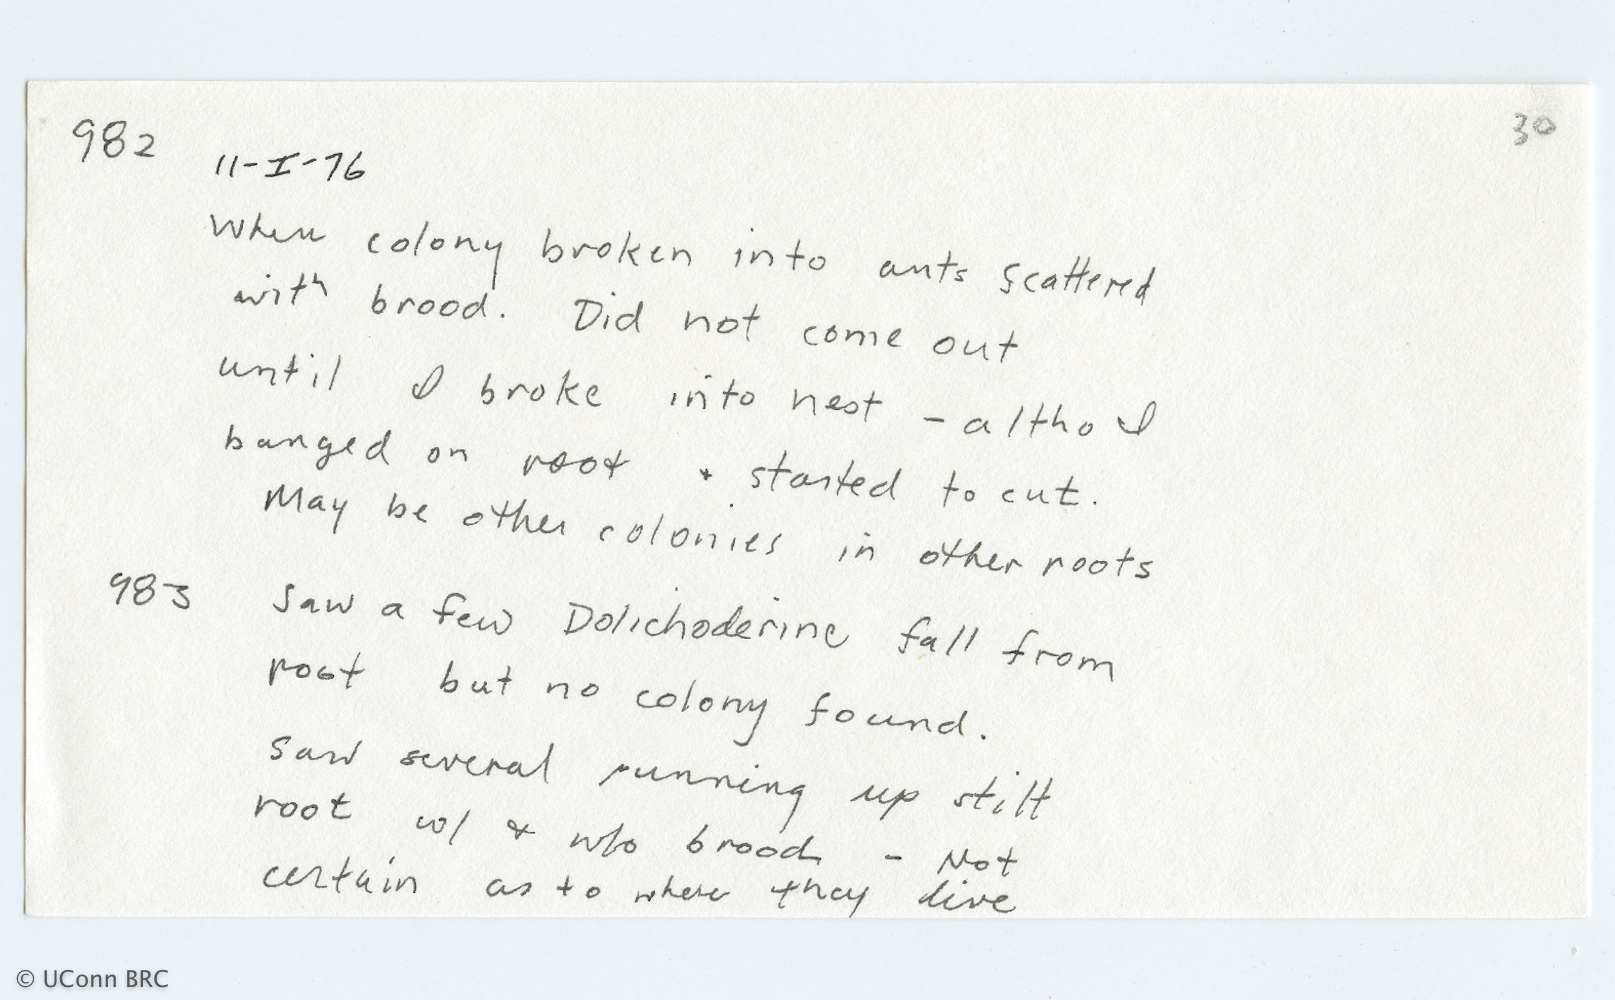 982
30
11-I-76
When colony broken into ants scattered
with brood. Did not come out
until I broke into nest - altho I
banged on root + started to cut.
May be other colonies in other roots
983 Saw a few Dolichoderine fall from
root but no colony found.
Saw several running up stilt
root w/ + w/o brood - Not
certain as to where they live
© UConn BRC